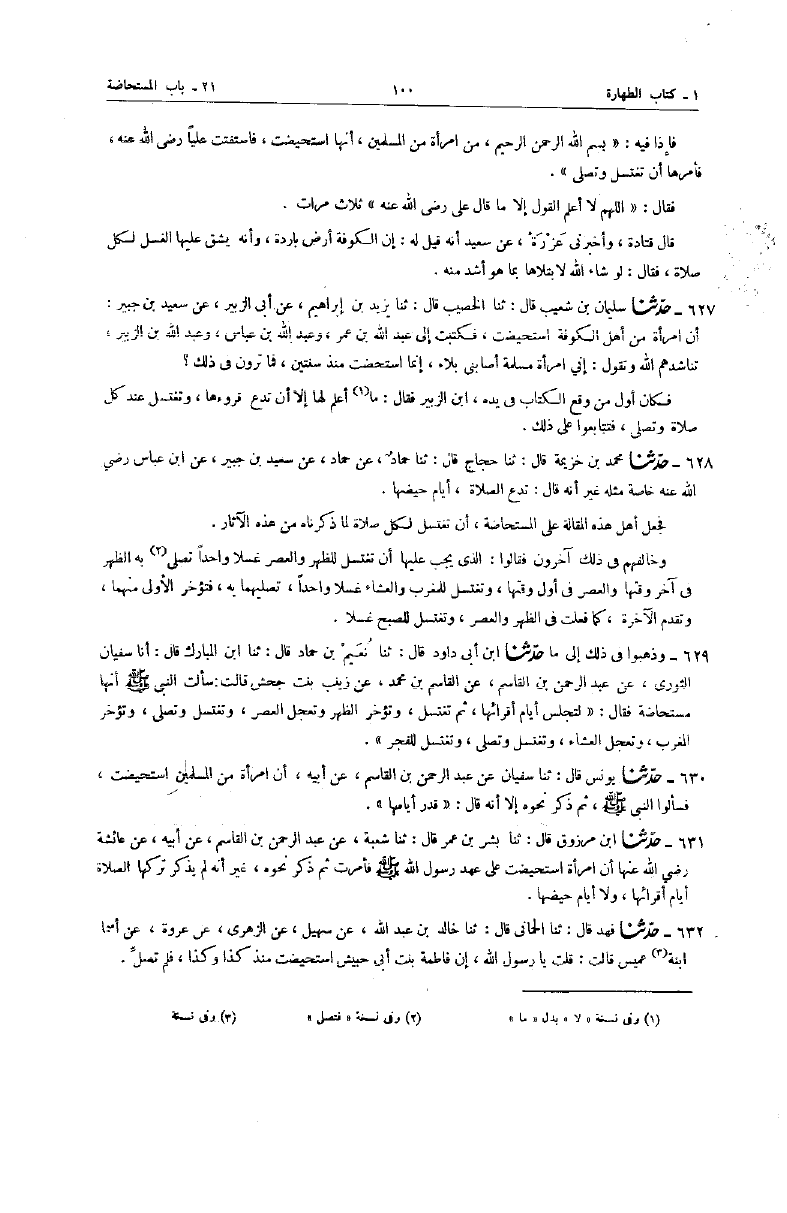 ١ - كتاب الطهارة ١٠٠ ٢١ - باب المستحاضة
فإذا فيه : « بسم الله الرحمن الرحيم ، من امرأة من المسلمين ، أنها استحيضت ، فاستفتت علياً رضى الله عنه ،
فأمرها أن تغتسل وتصلى » .
فقال : « اللهم لا أعلم القول إلا ما قال على رضى الله عنه » ثلاث مرات .
قال قتادة ، وأخبرنى عَزْرَة ، عن سعيد أنه قيل له : إن الكوفة أرض باردة ، وأنه يشق عليها الغسل لكل
صلاة ، فقال : لو شاء الله لابتلاها بما هو أشد منه .
٦٢٧ - حدّثنا سليمان بن شعيب قال : ثنا الخصيب قال : ثنا يزيد بن إبراهيم ، عن أبى الزبير ، عن سعيد بن جبير :
أن امرأة من أهل الكوفة استحيضت ، فكتبت إلى عبد الله بن عمر ، وعبد الله بن عباس ، وعبد الله بن الزبير ،
تناشدهم الله وتقول : إني امرأة مسلمة أصابنى بلاء ، إنما استحضت منذ سنتين ، فما ترون فى ذلك ؟
فكان أول من وقع الكتاب فى يده ، ابن الزبير فقال : ما(١) أعلم لها إلا أن تدع قروءها ، وتغتسل عند كل
صلاة وتصلى ، فتتابعوا على ذلك .
٦٢٨ - حدّثنا محمد بن خزيمة قال : ثنا حجاج قال : ثنا حمادٌ ، عن حماد ، عن سعيد بن جبير ، عن ابن عباس رضي
الله عنه خاصة مثله غير أنه قال : تدع الصلاة ، أيام حيضها .
فجعل أهل هذه المقالة على المستحاضة ، أن تغتسل لكل صلاة لما ذكرناه من هذه الآثار .
وخالفهم فى ذلك آخرون فقالوا : الذى يجب عليها أن تغتسل للظهر والعصر غسلا واحداً تصلى(٢) به الظهر
فى آخر وقتها والعصر فى أول وقتها ، وتغتسل للمغرب والعشاء غسلا واحداً ، تصليهما به ، فتؤخر الأولى منهما ،
وتقدم الآخرة ، كما فعلت فى الظهر والعصر ، وتغتسل للصبح غسلا .
٦٢٩ - وذهبوا فى ذلك إلى ما حدّثنا ابن أبى داود قال : ثنا نُعَيمْ بن حماد قال : ثنا ابن المبارك قال : أنا سفيان
الثورى ، عن عبد الرحمن بن القاسم ، عن القاسم بن محمد ، عن زينب بنت جحش قالت : سألت النبي ﷺ أنها
مستحاضة فقال : « لتجلس أيام أقرائها ، ثم تغتسل ، وتؤخر الظهر وتعجل العصر ، وتغتسل وتصلى ، وتؤخر
المغرب ، وتعجل العشاء ، وتغتسل وتصلى ، وتغتسل للفجر » .
٦٣٠ - حدّثنا يونس قال : ثنا سفيان عن عبد الرحمن بن القاسم ، عن أبيه ، أن امرأة من المسلمين استحيضت ،
فسألوا النبي ﷺ ، ثم ذكر نحوه إلا أنه قال : « قدر أيامها » .
٦٣١ - حدّثنا ابن مرزوق قال : ثنا بشر بن عمر قال : ثنا شعبة ، عن عبد الرحمن بن القاسم ، عن أبيه ، عن عائشة
رضي الله عنها أن امرأة استحيضت على عهد رسول الله ﷺ فأمرت ثم ذكر نحوه ، غير أنه لم يذكر تركها الصلاة
أيام أقرائها ، ولا أيام حيضها .
٦٣٢ - حدّثنا فهد قال : ثنا الحمانى قال : ثنا خالد بن عبد الله ، عن سهيل ، عن الزهرى ، عن عروة ، عن أسماء
ابنة(٣) عميس قالت : قلت يا رسول الله ، إن فاطمة بنت أبي حبيش استحيضت منذ كذا وكذا ، فلم تصلِّ .
(١) وفى نسخة « لا » بدل « ما » (٢) وفى نسخة « فتصل » (٣) وفى نسخة